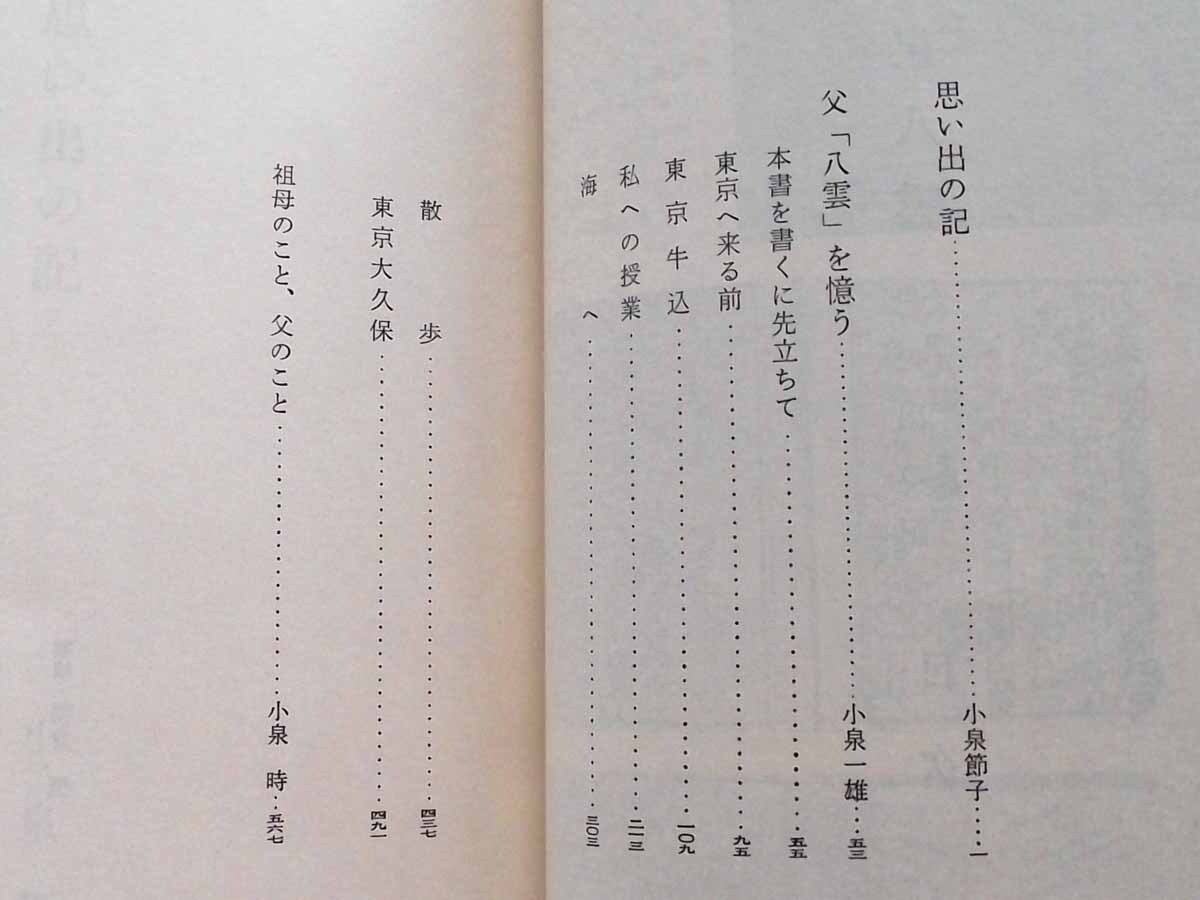 思い出の記……………………小泉節子……一
父「八雲」を憶う……………………小泉一雄……五三
本書を書くに先立ちて……………………五五
東京へ来る前……………………九五
東京牛込……………………一〇九
私への授業……………………二一三
海へ……………………三〇三
散歩……………………四三七
東京大久保……………………四九一
祖母のこと、父のこと……………………小泉　時……五六七